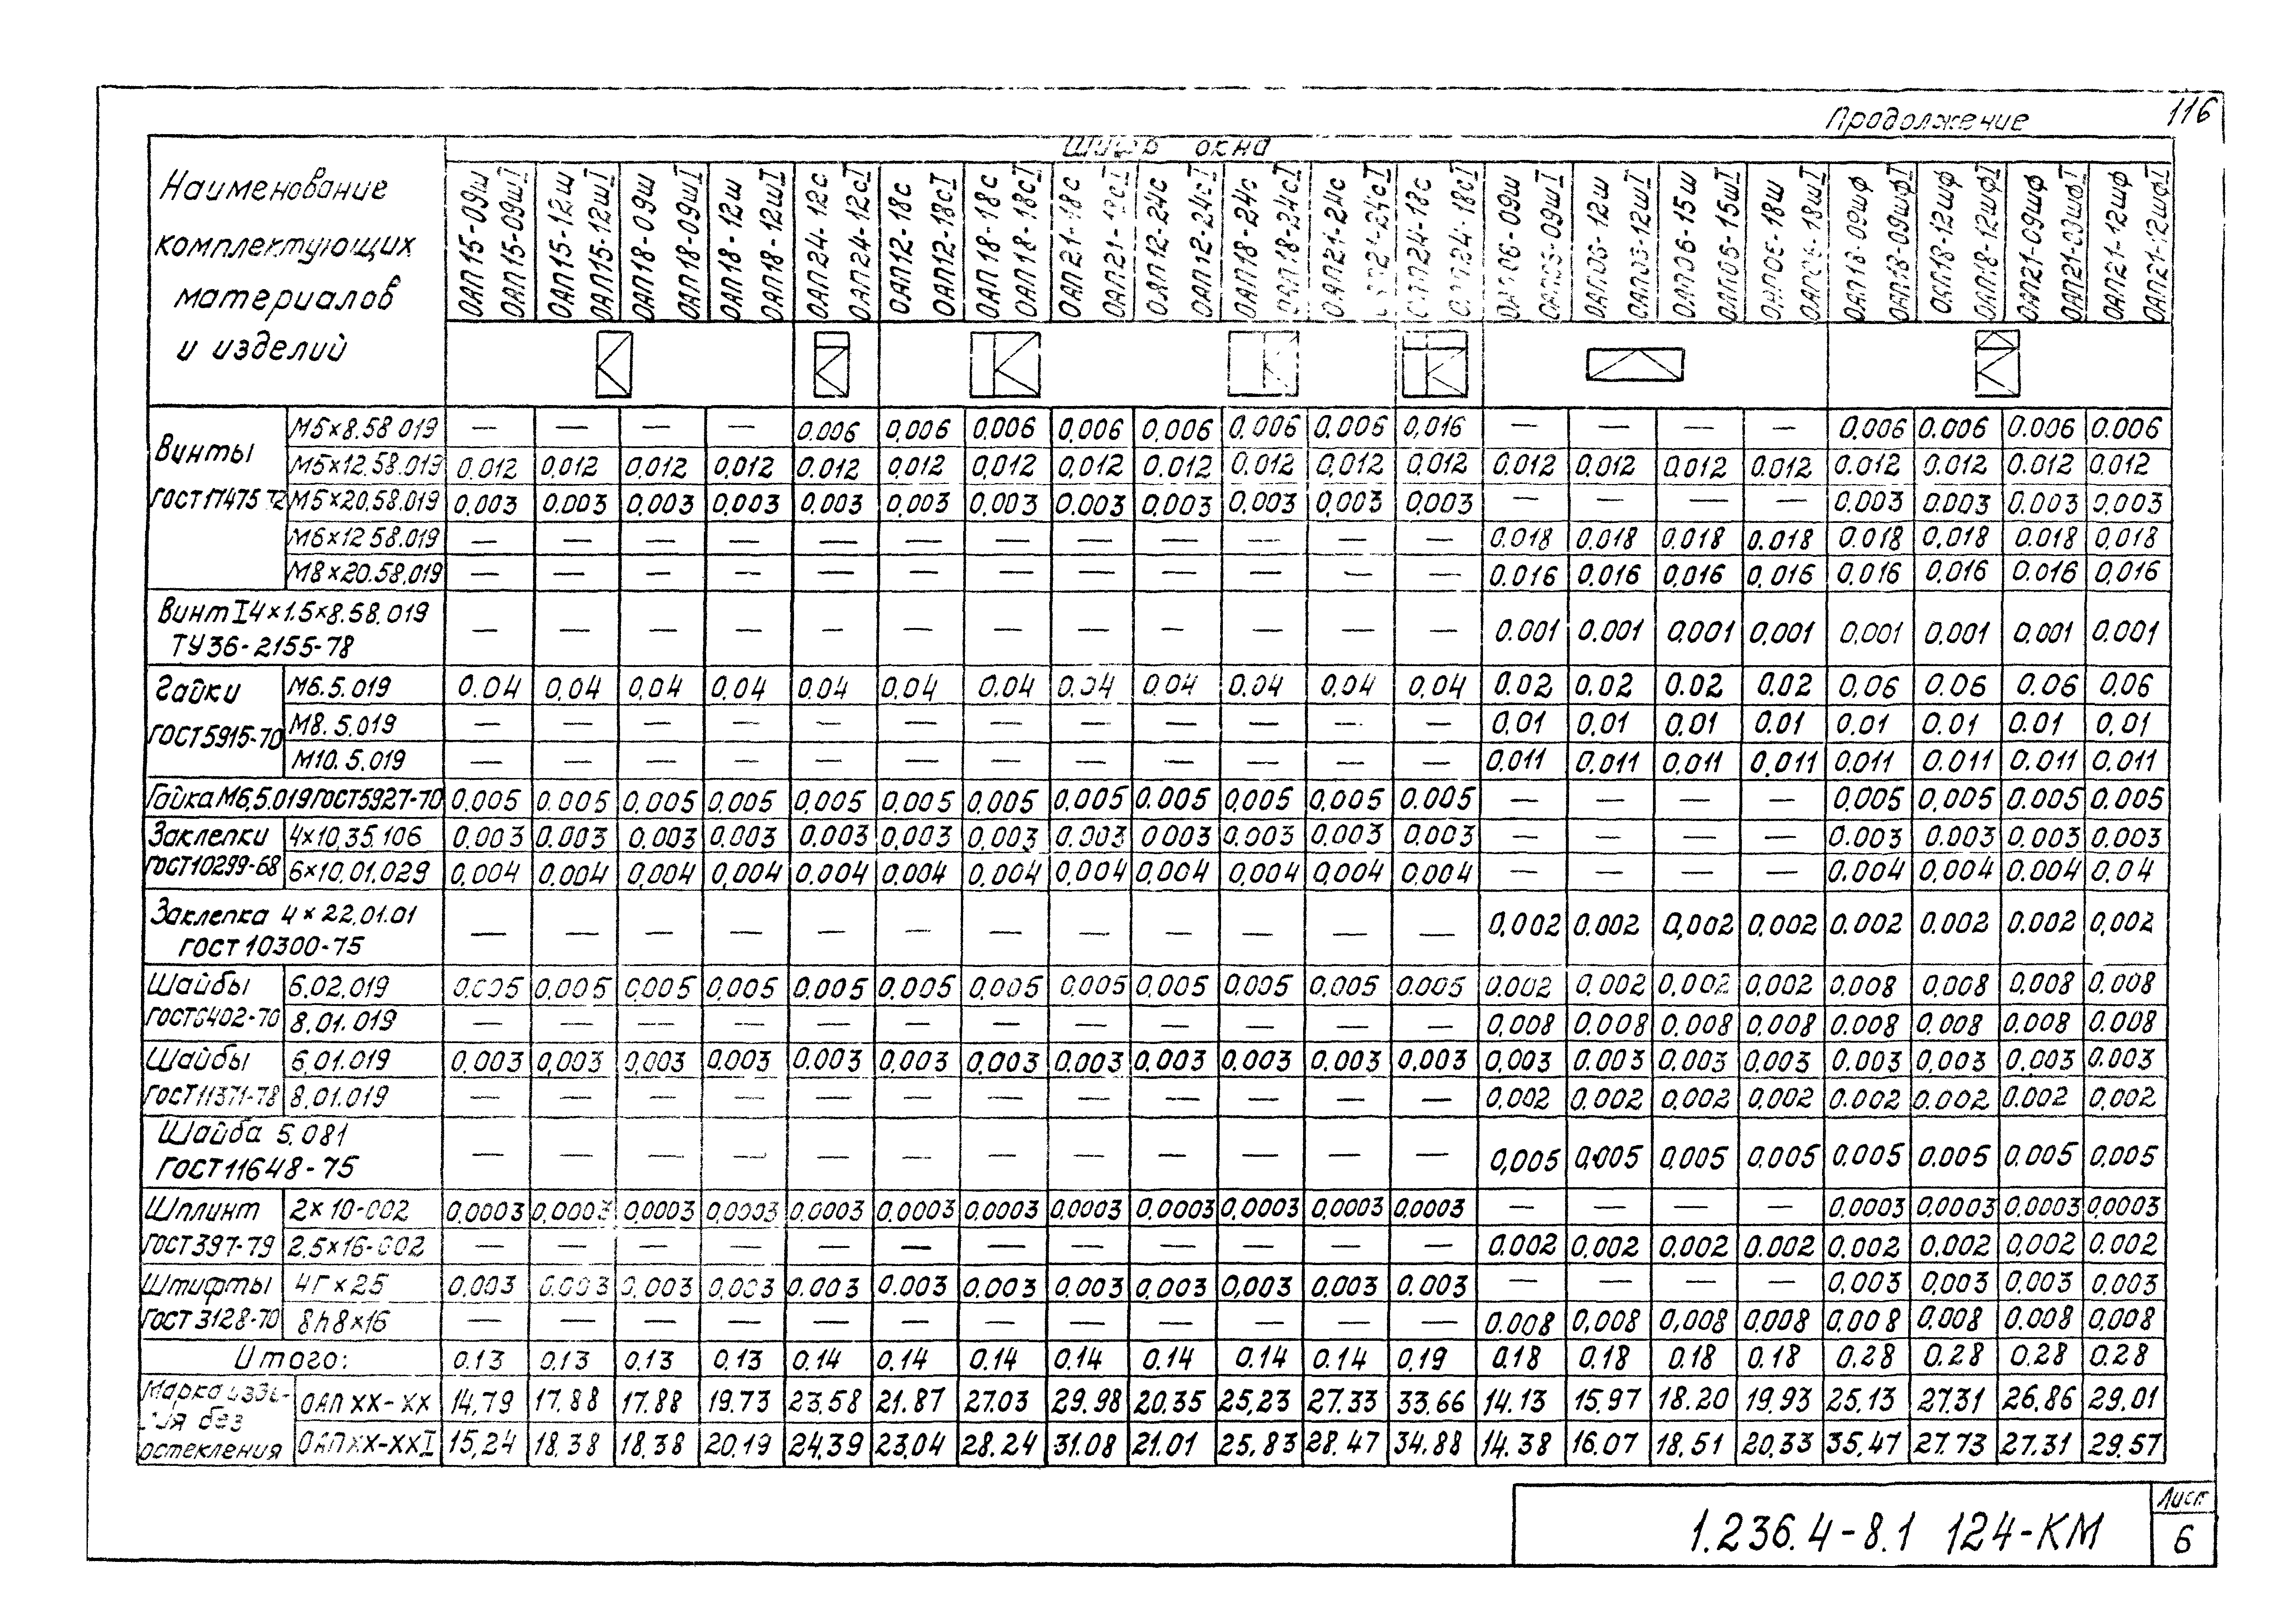 Продолжение
116
Шифр окна
Наименование
комплектующих
материалов
и изделий
ОАП15-09ш ОАП15-09шI ОАП15-12ш ОАП15-12шI ОАП18-09ш ОАП18-09шI ОАП18-12ш ОАП18-12шI ОАП24-12с ОАП24-12сI ОАП12-18с ОАП12-18сI ОАП18-18с ОАП18-18сI ОАП21-18с ОАП12-24с ОАП12-24сI ОАП18-24с ОАП18-24сI ОАП21-24с ОАП06-12ш ОАП06-15ш ОАП18-09шф ОАП18-09шфI ОАП18-12шф ОАП18-12шфI ОАП21-09шф ОАП21-12шф ОАП21-12шфI
Винты
ГОСТ17475-72
М5×8.58 019 — — — — 0.006 0,006 0.006 0,006 0,006 0.006 0.006 0,016 — — — — 0.006 0.006 0.006 0.006
М5×12.58.019 0,012 0,012 0,012 0,012 0.012 0,012 0,012 0,012 0.012 0.012 0,012 0,012 0.012 0.012 0.012 0.012 0.012 0.012 0.012 0,012
М5×20.58.019 0,003 0.003 0,003 0,003 0.003 0,003 0,003 0.003 0,003 0.003 0,003 0,003 — — — — 0.003 0.003 0.003 0,003
М6×12 58.019 — — — — — — — — — — — — 0.018 0.018 0.018 0.018 0.018 0,018 0.018 0,018
М8×20.58.019 — — — — — — — — — — — — 0.016 0.016 0,016 0,016 0.016 0,016 0.016 0,016
Винт I4×1.5×8.58.019
ТУ36-2155-78
— — — — — — — — — — — — 0.001 0.001 0,001 0,001 0,001 0.001 0.001 0.001
Гайки
ГОСТ5915-70
М6.5.019 0.04 0,04 0,04 0,04 0,04 0.04 0.04 0.04 0.04 0.04 0,04 0,04 0.02 0.02 0.02 0.02 0,06 0.06 0.06 0,06
М8.5.019 — — — — — — — — — — — — 0,01 0,01 0.01 0.01 0.01 0.01 0.01 0,01
М10.5.019 — — — — — — — — — — — — 0,011 0.011 0,011 0,011 0,011 0.011 0.011 0.011
Гайка М6,5.019 ГОСТ5927-70 0,005 0.005 0,005 0,005 0,005 0,005 0,005 0,005 0.005 0,005 0,005 0.005 — — — — 0.005 0,005 0.005 0.005
Заклепки
ГОСТ10299-68
4×10,35.106 0.003 0.003 0.003 0.003 0.003 0.003 0.003 0.003 0.003 0.003 0.003 0.003 — — — — 0.003 0.003 0.003 0.003
6×10,01.029 0,004 0.004 0,004 0,004 0.004 0,004 0.004 0,004 0.004 0,004 0,004 0,004 — — — — 0.004 0,004 0.004 0.04
Заклепка 4×22,01.01
ГОСТ 10300-75
— — — — — — — — — — — — 0,002 0.002 0,002 0.002 0.002 0.002 0.002 0,002
Шайбы
ГОСТ6402-70
6.02.019 0,005 0,005 0,005 0,005 0.005 0,005 0,005 0,005 0,005 0,005 0,005 0.005 0.002 0,002 0,002 0,002 0,008 0,008 0,008 0,008
8.01.019 — — — — — — — — — — — — 0,008 0.008 0.008 0.008 0.008 0,008 0.008 0.008
Шайбы
ГОСТ11371-78
6.01.019 0,003 0,003 0,003 0,003 0.003 0,003 0,003 0.003 0.003 0.003 0.003 0,003 0,003 0.003 0.003 0,003 0.003 0.003 0,003 0.003
8,01.019 — — — — — — — — — — — — 0,002 0.002 0,002 0,002 0.002 0.002 0.002 0,002
Шайба 5.081
ГОСТ11648-75
— — — — — — — — — — — — 0,005 0,005 0.005 0.005 0.005 0.005 0.005 0,005
Шплинт
ГОСТ397-79
2×10-002 0,0003 0,0003 0,0003 0,0003 0.0003 0.0003 0,0003 0,0003 0.0003 0,0003 0.0003 0.0003 — — — — 0.0003 0.0003 0.0003 0,0003
2,5×16-002 — — — — — — — — — — — — 0.002 0,002 0.002 0.002 0,002 0.002 0,002 0.002
Штифты
ГОСТ 3128-70
4Г×25 0,003 0.003 0,003 0,003 0.003 0.003 0.003 0.003 0,003 0,003 0.003 0.003 — — — — 0,003 0,003 0.003 0.003
8h8×16 — — — — — — — — — — — — 0.008 0,008 0,008 0.008 0.008 0.008 0.008 0,008
Итого: 0.13 0.13 0.13 0.13 0.14 0.14 0.14 0.14 0.14 0.14 0.14 0,19 0.18 0.18 0.18 0.18 0.28 0.28 0.28 0.28
Марка
без
остекления
ОАП ХХ-ХХ 14,79 17.88 17.88 19.73 23.58 21.87 27.03 29.98 20.35 25,23 27.33 33.66 14.13 15,97 18.20 19,93 25,13 27.31 26,86 29.01
ОАПХХ-ХХI 15,24 18.38 18,38 20,19 24.39 23,04 28.24 31.08 21.01 25.83 28.47 34.88 14.38 16.07 18.51 20,33 35,47 27.73 27.31 29.57
1.236.4-8.1 124-КМ
Лист
6